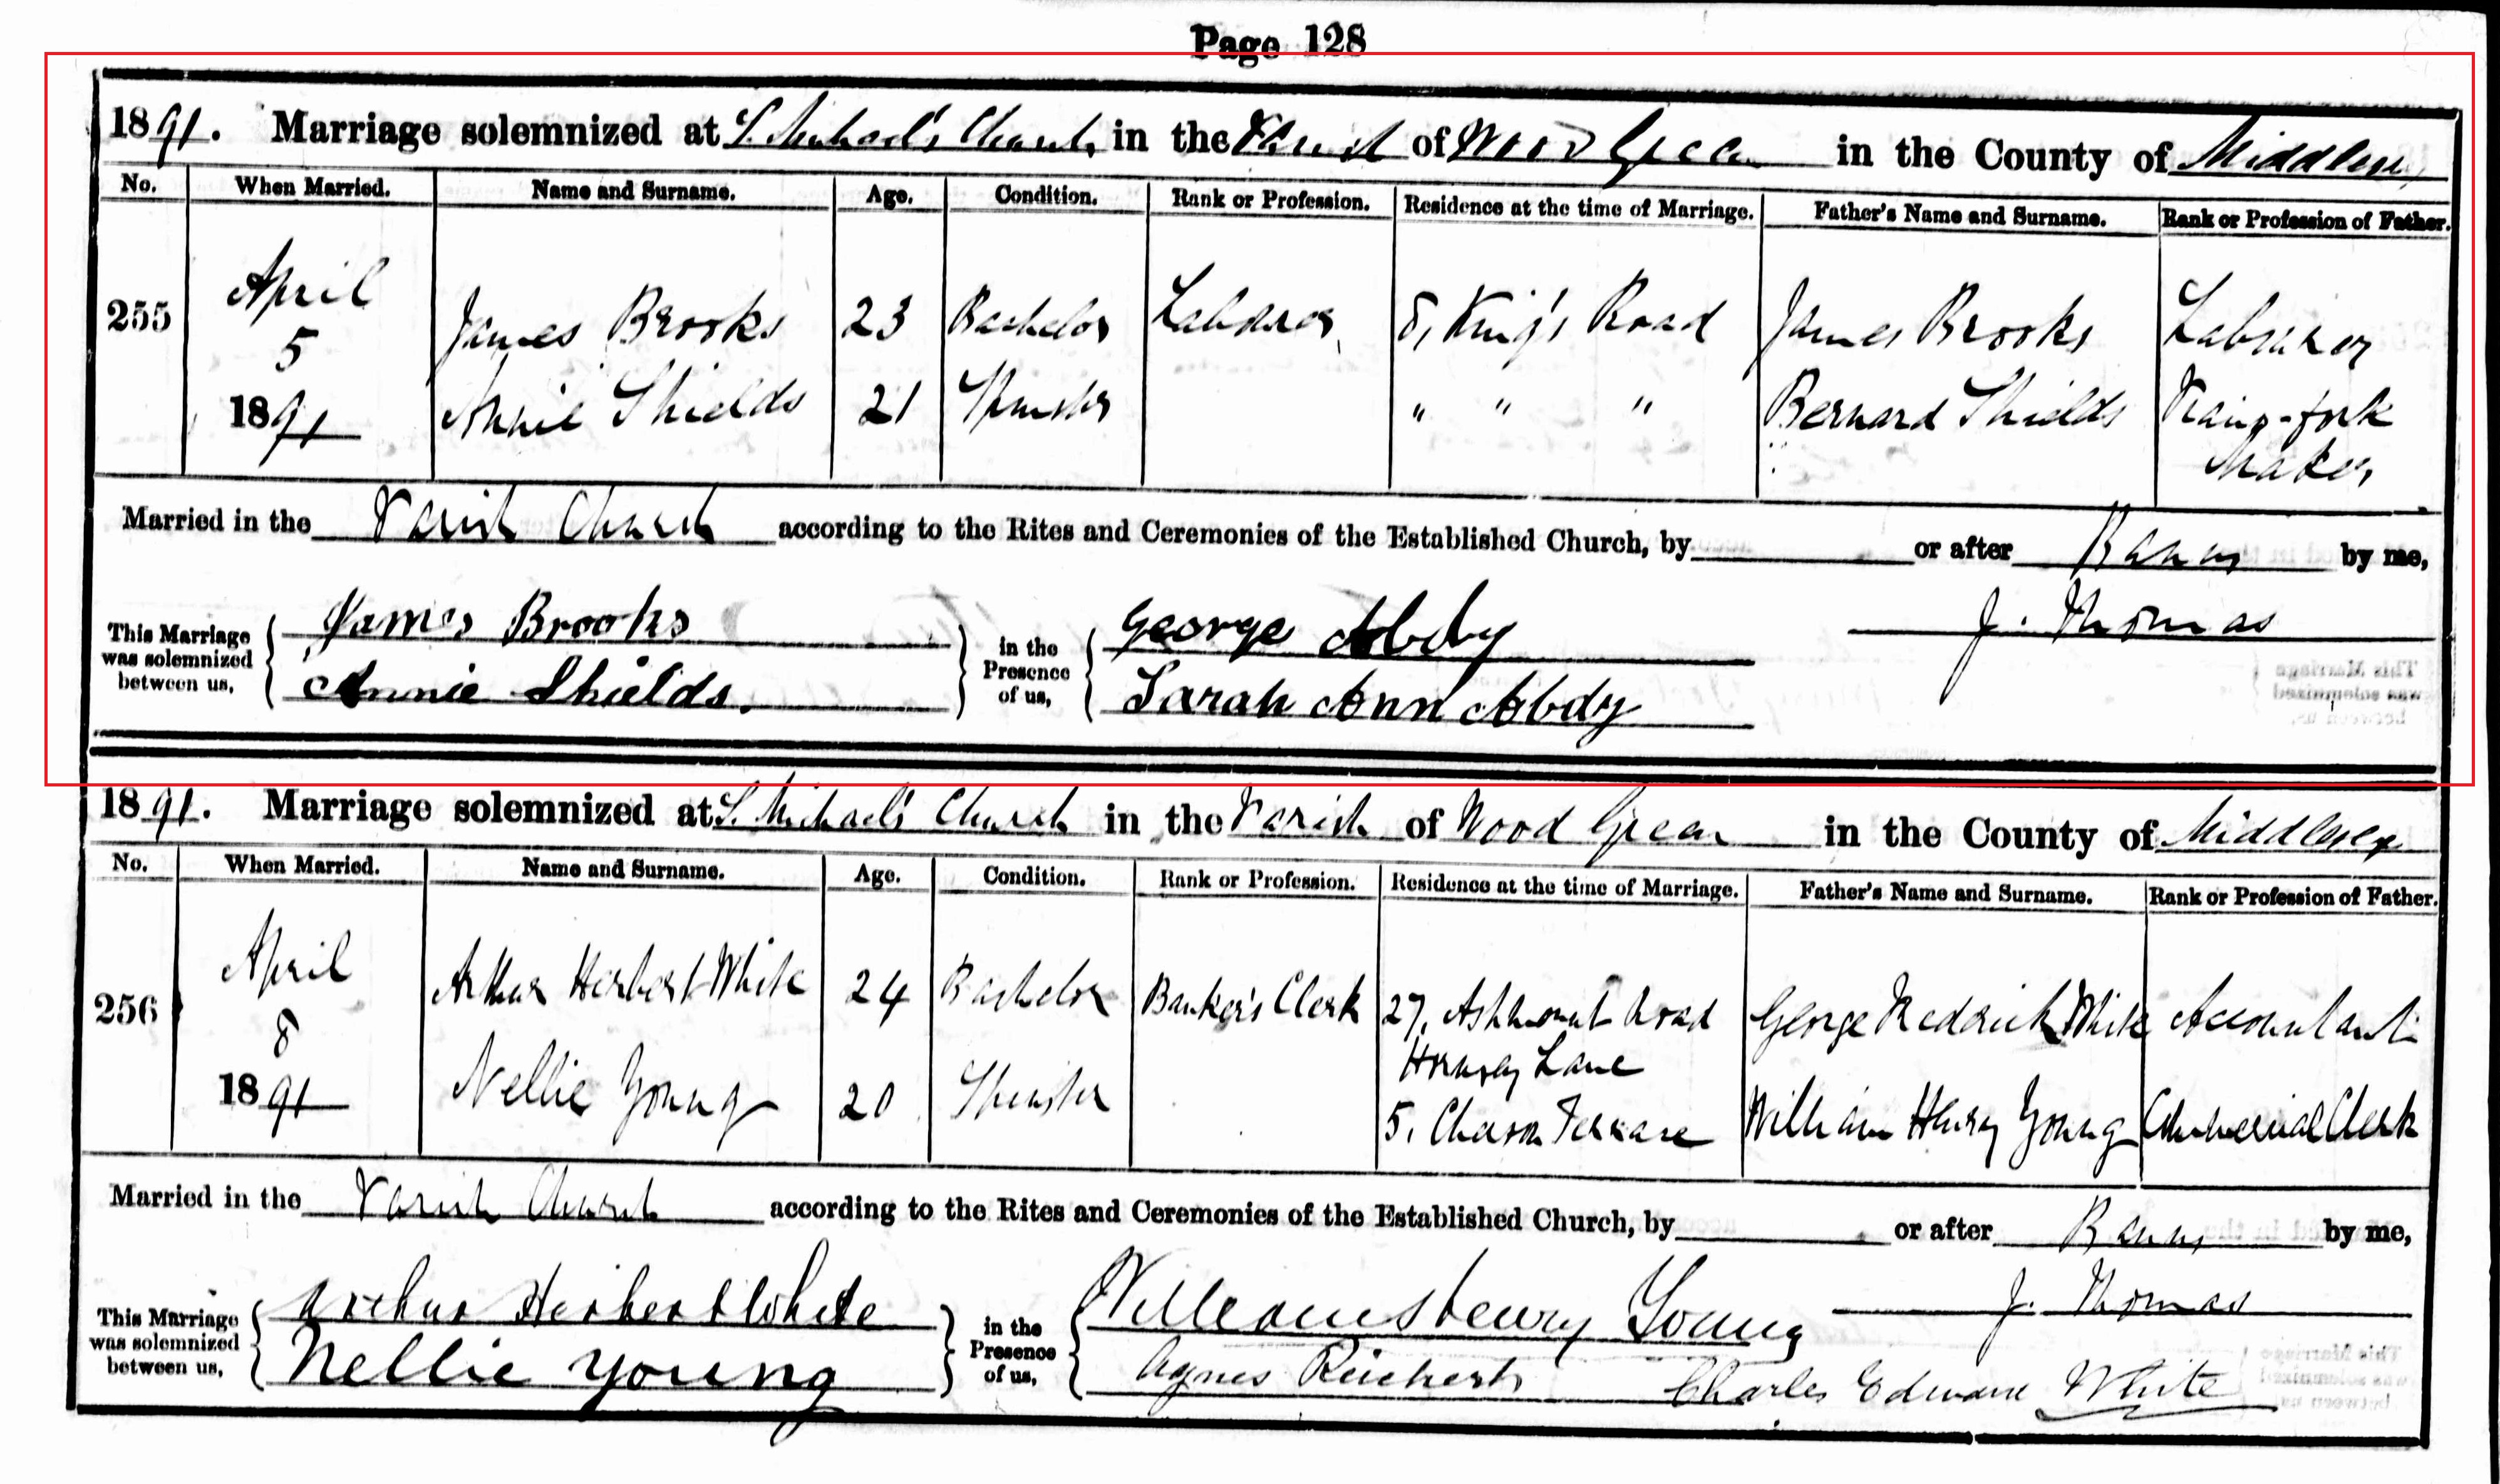 Page 128
1891. Marriage solemnized at St. Michael's Church in the Parish of Wood Green in the County of Middlesex
No. When Married. Name and Surname. Age. Condition. Rank or Profession. Residence at the time of Marriage. Father's Name and Surname. Rank or Profession of Father.
255 April 5 1891
James Brooks 23 Bachelor Labourer 8, King's Road James Brooks Labourer
Annie Shields 21 Spinster " " " Bernard Shields
Maker
Married in the Parish Church according to the Rites and Ceremonies of the Established Church, by or after Banns by me,
This Marriage was solemnized between us, James Brooks Annie Shields. in the Presence of us, George Abdy Sarah Ann Abdy J. Thomas
1891. Marriage solemnized at St. Michael's Church in the Parish of Wood Green in the County of Middlesex
No. When Married. Name and Surname. Age. Condition. Rank or Profession. Residence at the time of Marriage. Father's Name and Surname. Rank or Profession of Father.
256 April 8 1891
Arthur Herbert White 24 Bachelor Banker's Clerk 27, Ashmount Road George Fredrick White Accountant
Hornsey Lane
Nellie Young 20 Spinster 5, Terrace William Henry Young Commercial Clerk
Married in the Parish Church according to the Rites and Ceremonies of the Established Church, by or after Banns by me,
This Marriage was solemnized between us, Arthur Herbert White Nellie Young in the Presence of us, William Henry Young Agnes Charles Edward White J. Thomas